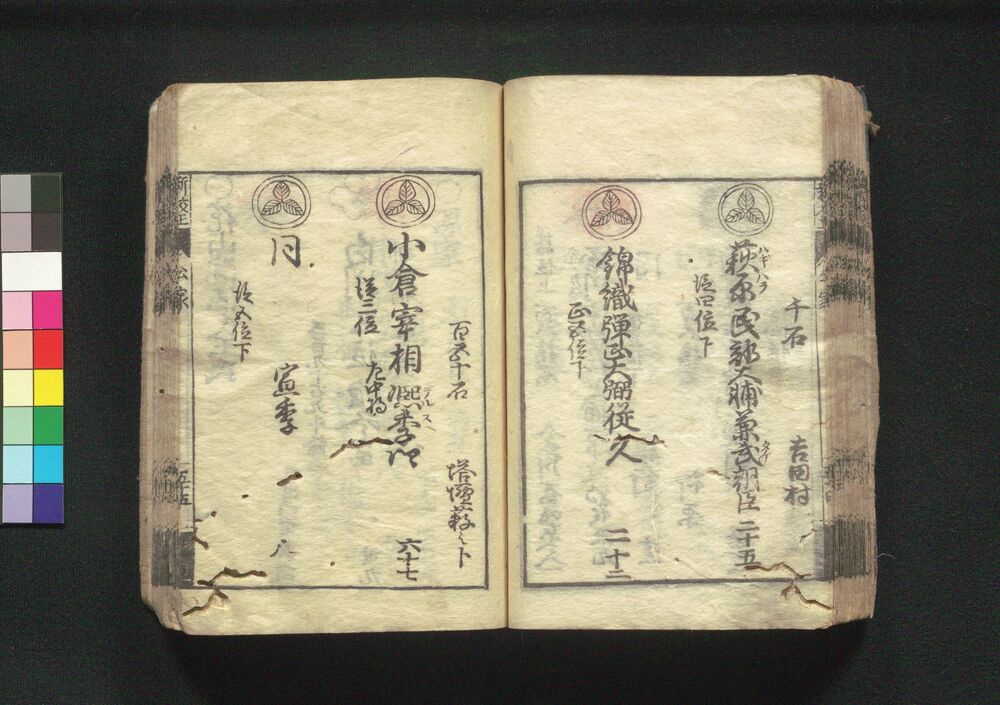 千石
吉田村
萩原民部大輔兼武朝臣 二十五
ハギハラ
従四位下
錦織弾正大弼従久 二十二
正五位下
百五十石
塔之壇薮之下
小倉宰相凞季卿 六十七
従三位
左中将
同 宣季 八
従五位下
新校正
公家